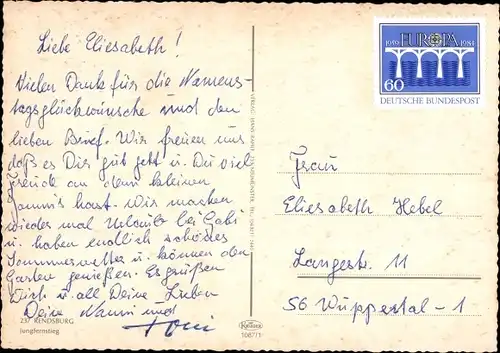 Liebe Eliesabeth!
Vielen Dank für die Namens-
tagsglückwünsche und den
lieben Brief. Wir freuen uns
daß es Dir gut geht u. Du viel
Freude an dem kleinen
hast. Wir machen
wieder mal Urlaub bei Gabi
u. haben endlich schönes
Sommerwetter u. können den
Garten genießen. Es grüßen
Dich u. all Deine Lieben
Deine Nanni und
Toni
237 RENDSBURG
Jungfernstieg
EUROPA
1959 1984
60
DEUTSCHE BUNDESPOST
Frau
Eliesabeth Hebel
Langestr. 11
56 Wuppertal-1
Krüger